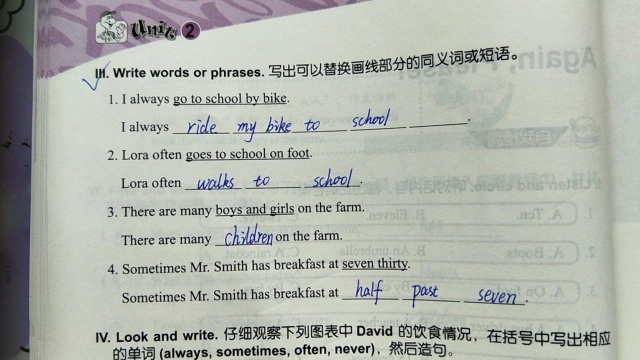 Unit 2
III. Write words or phrases. 写出可以替换画线部分的同义词或短语。
1. I always go to school by bike.
I always ride my bike to school.
2. Lora often goes to school on foot.
Lora often walks to school.
3. There are many boys and girls on the farm.
There are many children on the farm.
4. Sometimes Mr. Smith has breakfast at seven thirty.
Sometimes Mr. Smith has breakfast at half past seven.
IV. Look and write. 仔细观察下列图表中 David 的饮食情况，在括号中写出相应
的单词 (always, sometimes, often, never)，然后造句。